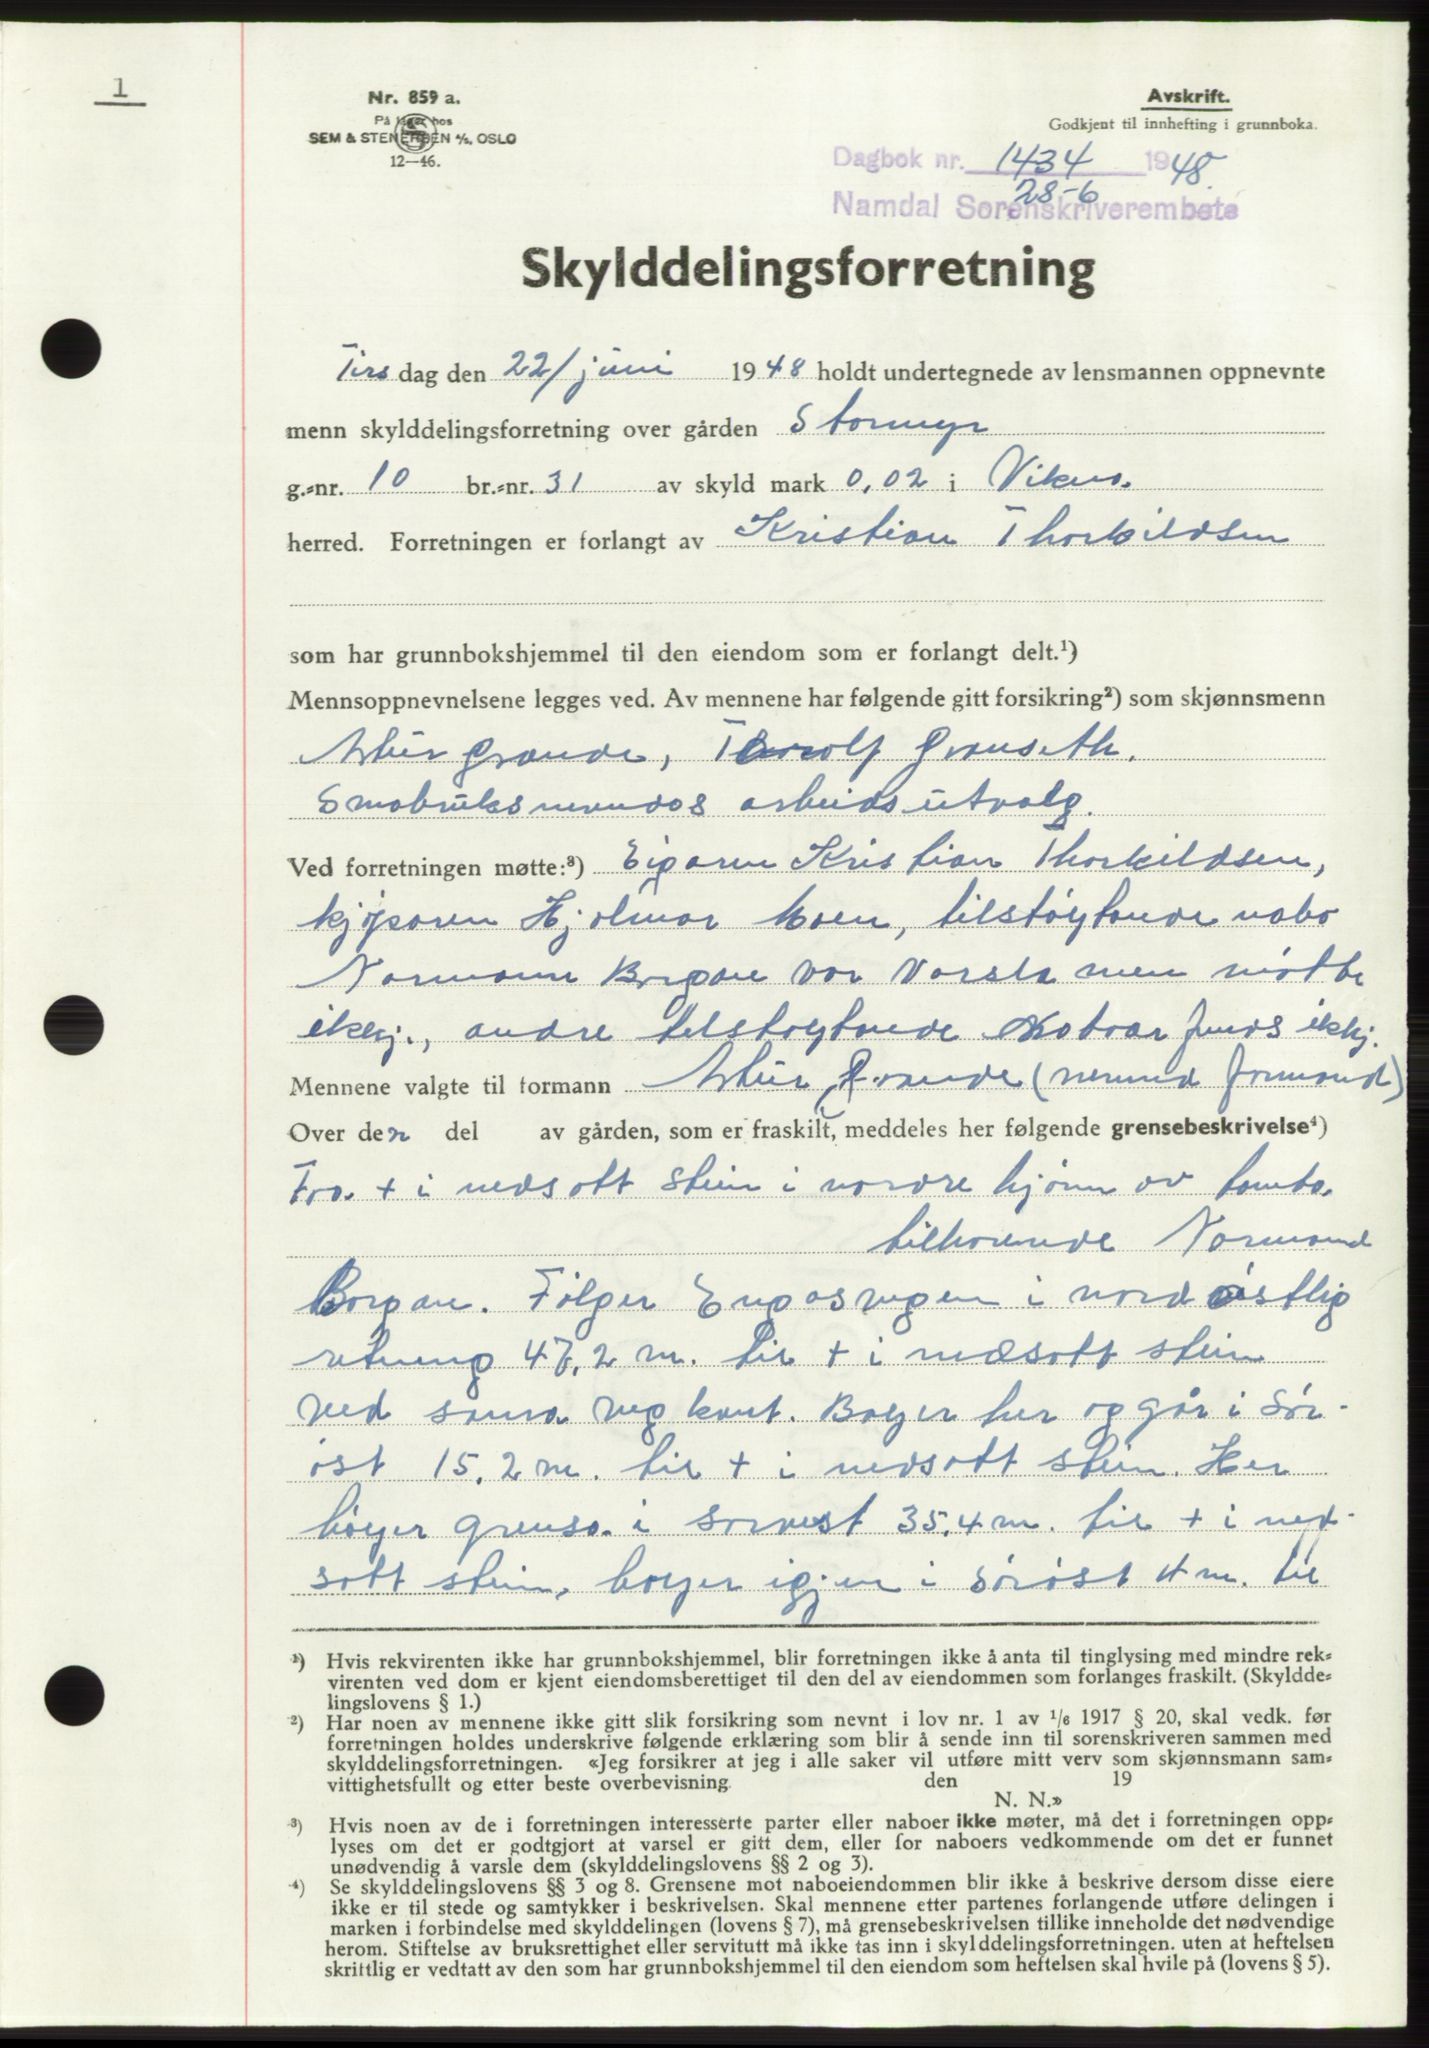 1
Nr. 859 a.
På lager hos
SEM & STENERSEN A/S. OSLO
12—46.
Avskrift.
Godkjent til innhefting i grunnboka.
Dagbok nr. 1434 1948.
28-6
Namdal Sorenskriverembete
Skylddelingsforretning
Tirsdag den 22/juni 1948 holdt undertegnede av lensmannen oppnevnte
menn skylddelingsforretning over gården Stormyr
g.=nr. 10 br.=nr. 31 av skyld mark 0,02 i Vikna.
herred. Forretningen er forlangt av Kristian Thorkildsen
som har grunnbokshjemmel til den eiendom som er forlangt delt.¹)
Mennsoppnevnelsene legges ved. Av mennene har følgende gitt forsikring²) som skjønnsmenn
Artur Grande, Torolf Granseth.
Småbruksnemndas arbeidsutvalg.
Ved forretningen møtte:³) Eigaren Kristian Thorkildsen,
kjøparen Hjalmar Moen, tilstøytande nabo
Normann Borgan var varsla men møtte
ikkj., andre tilstøytande naboar funds ikkj.
Mennene valgte til formann Artur Grande (nemnd formand)
Over den del av gården, som er fraskilt, meddeles her følgende grensebeskrivelse⁴)
Fra + i nedsatt stein i nordre hjørne av tomta
tilhørende Normand
Borgan. Følger Engasvegen i nordøstlig
retning 47,2 m. til + i nedsatt stein
ved sama vegkant. Bøyer her og går i sør-
øst 15,2 m. til + i nedsatt stein. Her
bøyer grensa i sørvest 35,4 m. til + i ned-
satt stein, bøyer igjen i sørøst 4 m. til
¹) Hvis rekvirenten ikke har grunnbokshjemmel, blir forretningen ikke å anta til tinglysing med mindre rek=
virenten ved dom er kjent eiendomsberettiget til den del av eiendommen som forlanges fraskilt. (Skyldde=
lingslovens § 1.)
²) Har noen av mennene ikke gitt slik forsikring som nevnt i lov nr. 1 av 1/6 1917 § 20, skal vedk. før
forretningen holdes underskrive følgende erklæring som blir å sende inn til sorenskriveren sammen med
skylddelingsforretningen. «Jeg forsikrer at jeg i alle saker vil utføre mitt verv som skjønnsmann sam=
vittighetsfullt og etter beste overbevisning. den 19
N. N.»
³) Hvis noen av de i forretningen interesserte parter eller naboer ikke møter, må det i forretningen opp=
lyses om det er godtgjort at varsel er gitt dem, eller for naboers vedkommende om det er funnet
unødvendig å varsle dem (skylddelingslovens §§ 2 og 3).
⁴) Se skylddelingslovens §§ 3 og 8. Grensene mot naboeiendommen blir ikke å beskrive dersom disse eiere
ikke er til stede og samtykker i beskrivelsen. Skal mennene etter partenes forlangende utføre delingen i
marken i forbindelse med skylddelingen (lovens § 7), må grensebeskrivelsen tillike inneholde det nødvendige
herom. Stiftelse av bruksrettighet eller servitutt må ikke tas inn i skylddelingsforretningen. uten at heftelsen
skriftlig er vedtatt av den som har grunnbokshjemmel til den eiendom som heftelsen skal hvile på (lovens § 5).